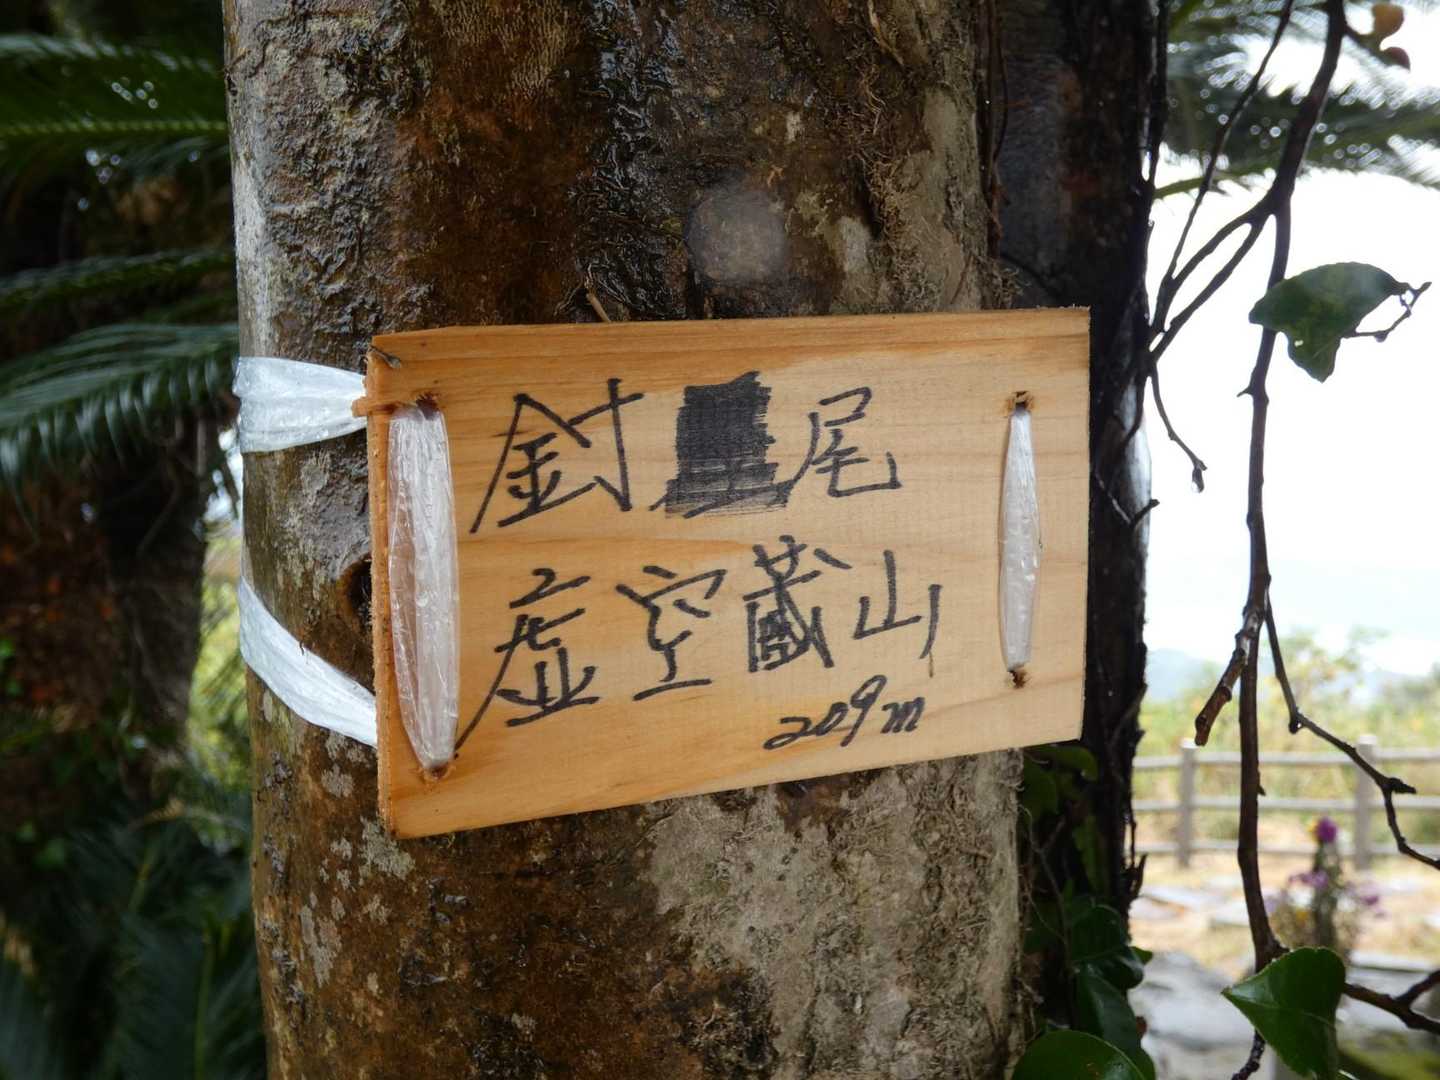 針尾
虚空蔵山
209m